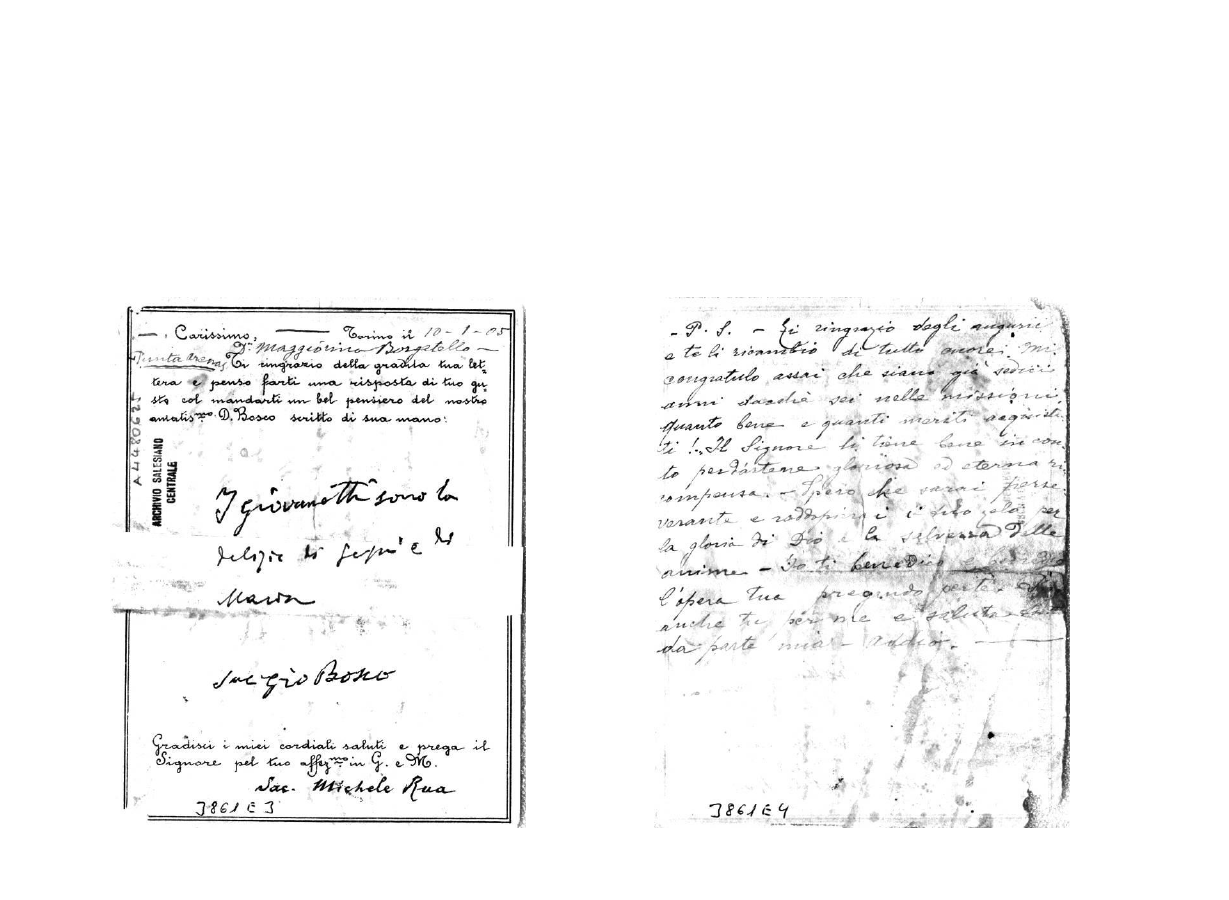 Carissimo, Torino il 10-1-05
Dn Maggiorino Borgatello
Punta Arenas Ti ringrazio della gradita tua let-
tera e penso farti una risposta di tuo gu-
sto col mandarti un bel pensiero del nostro
amatissmo D. Bosco scritto di sua mano:
A4480625
ARCHIVIO SALESIANO
CENTRALE
I giovanetti sono la
delizia di Gesù e di
Maria
Sac Gio Bosco
Gradisci i miei cordiali saluti e prega il
Signore pel tuo affezmo in G. e M.
Sac. Michele Rua
3861E3
- P. S. - Ti ringrazio degli augurii
e te li ricambio di tutto cuore. Mi
congratulo assai che siano già sedici
anni dacchè sei nelle missioni.
Quanto bene e quanti meriti acquista-
ti! Il Signore li tiene bene in con-
to per dartene gloriosa ed eterna ri-
compensa. - Spero che sarai perse-
verante e raddoppierai il tuo zelo per
la gloria di Dio e la salvezza delle
anime - Io ti benedico
l'opera tua pregando per te.
anche tu per me e saluta
da parte mia - Addio.
3861E4